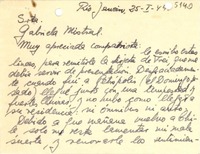 Río, Janeiro 25-I-44
Srta.
Gabriela Mistral.
Muy apreciada compatriota: le escribo estas
líneas, para remitirle la tarjeta de Frei que me
debía servir de presentación. Desgraciadamente
cuando fuí a Petrópolis el Domingo pasado
llegué junto con una tempestad y
fuertes lluvias, y no hubo como llegar a
su residencia, ni omnibus ni autos.
Debido a que mañana vuelvo a Chile,
solo me resta lamentar mi mala
suerte, y renovarle los